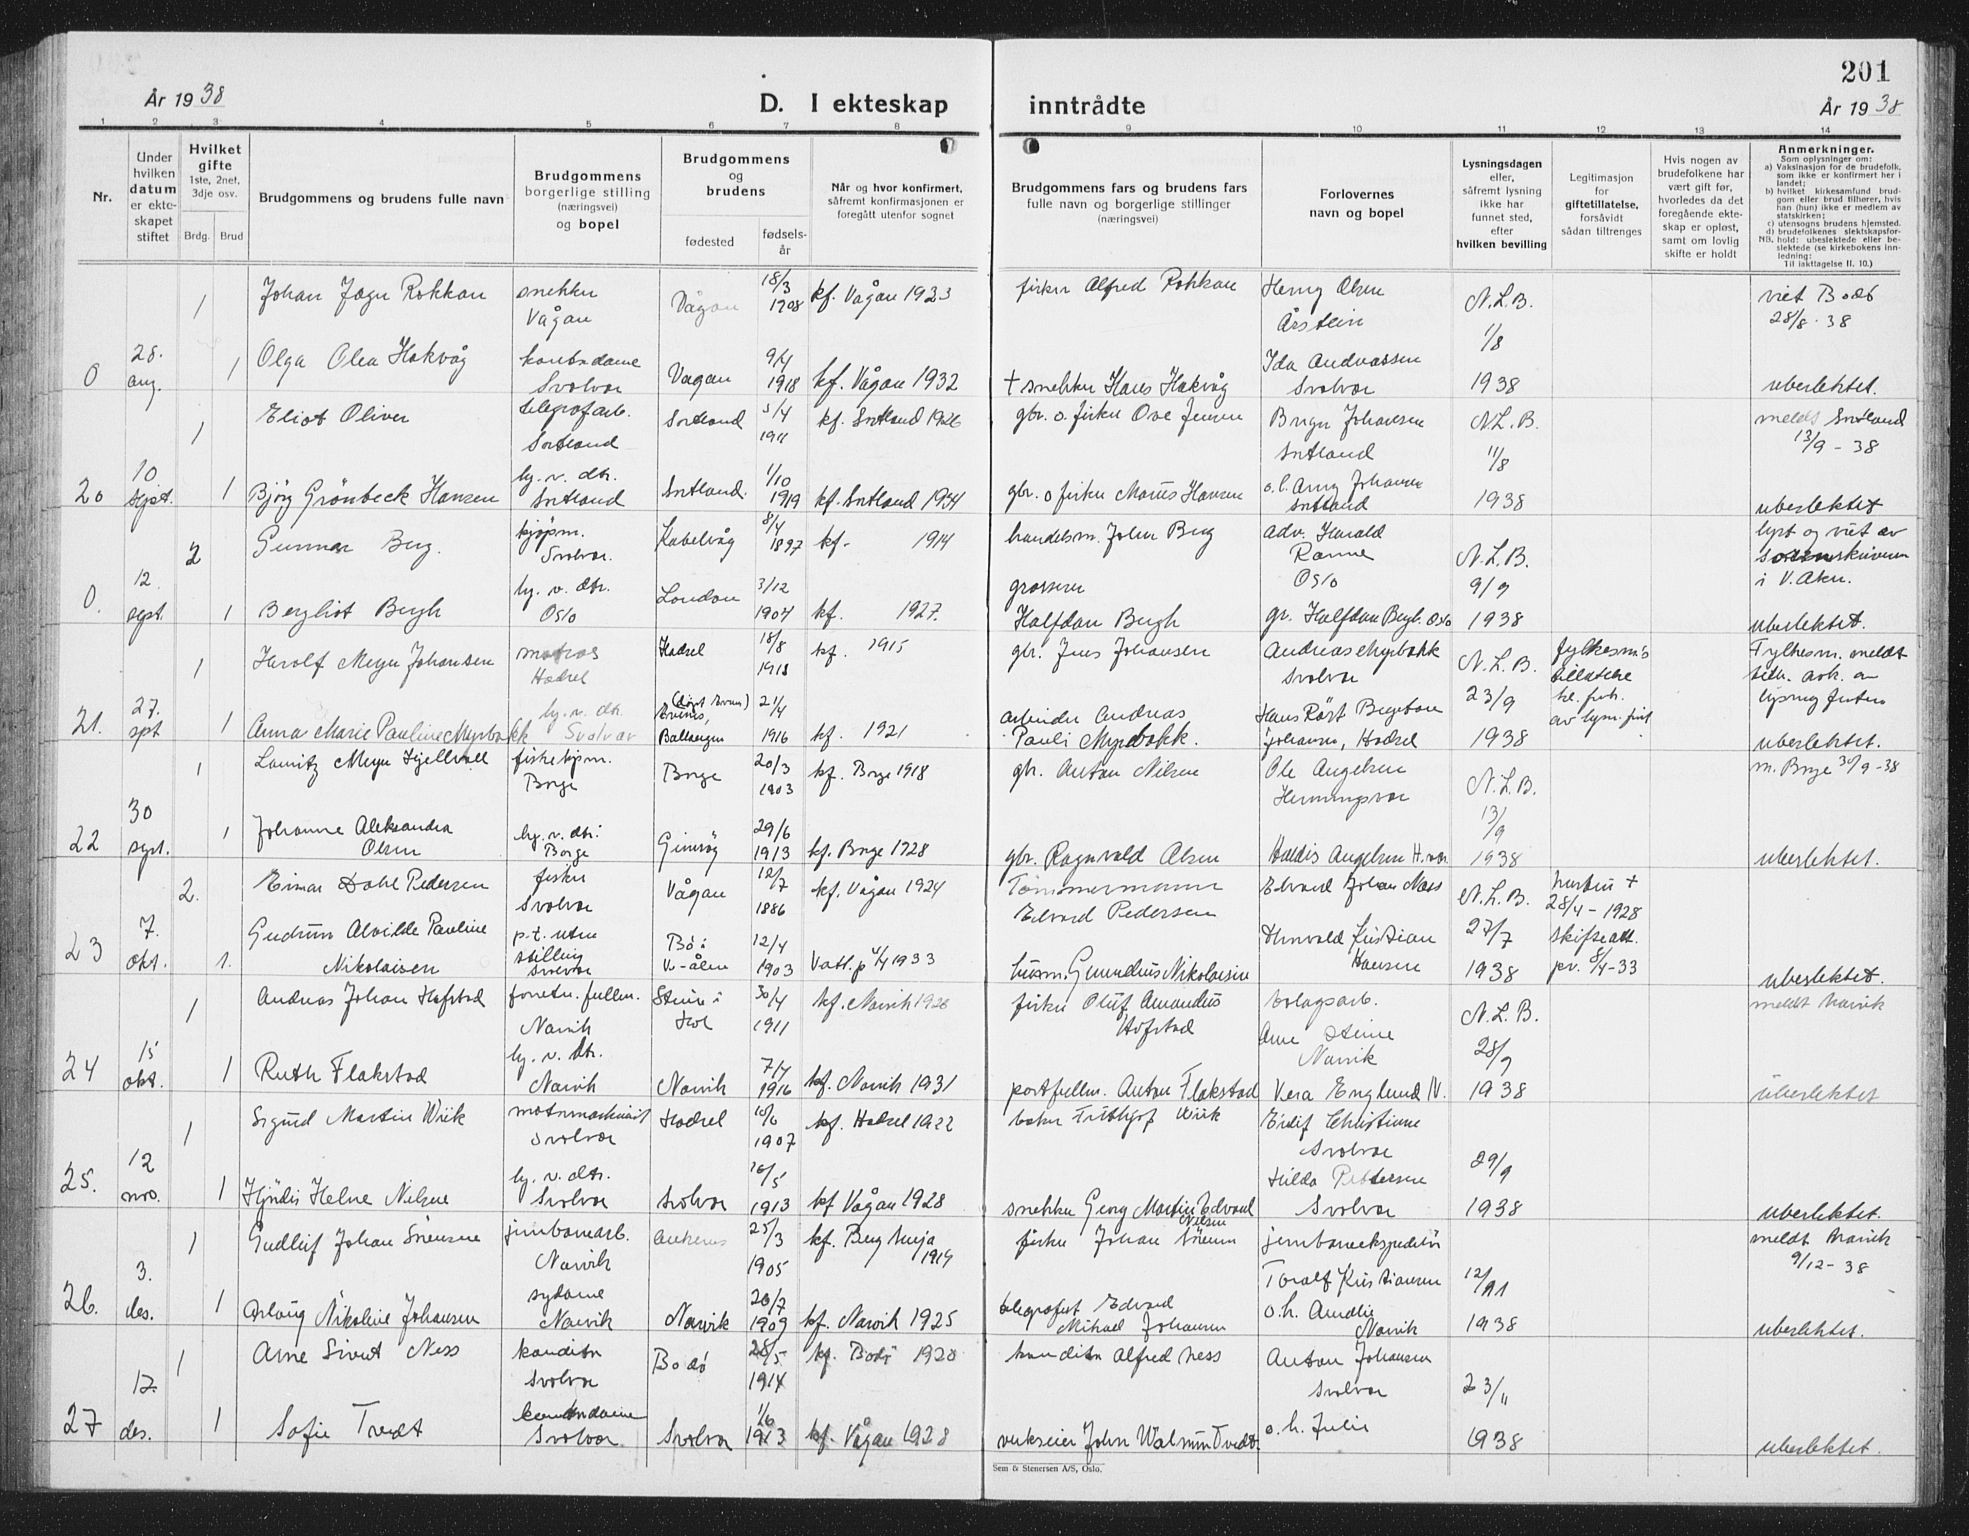 201
År 1938
D. I ekteskap inntrådte
År 1938
1 2 3 4 5 6 7 8 9 10 11 12 13 14
Nr.
Under hvilken datum er ekteskapet stiftet
Hvilket gifte
1ste, 2net, 3dje osv.
Brdg. Brud
Brudgommens og brudens fulle navn
Brudgommens borgerlige stilling (næringsvei) og bopel
Brudgommens og brudens
fødested
fødselsår
Når og hvor konfirmert, såfremt konfirmasjonen er foregått utenfor sognet
Brudgommens fars og brudens fars fulle navn og borgerlige stillinger (næringsvei)
Forlovernes navn og bopel
Lysningsdagen eller, såfremt lysning ikke har funnet sted, efter hvilken bevilling
Legitimasjon for giftetillatelse, forsåvidt sådan tiltrenges
Hvis nogen av brudefolkene har vært gift før, hvorledes da det foregående ekteskap er opløst, samt om lovlig skifte er holdt
Anmerkninger.
Som oplysninger om:
a) Vaksinasjon for de brudefolk, som ikke er konfirmert her i landet;
b) hvilket kirkesamfund brudgom eller brud tilhører, hvis han (hun) ikke er medlem av statskirken;
c) utensogns brudens hjemsted.
d) brudefolkenes slektskapsforhold: ubeslektede eller beslektede (se kirkebokens innledning:
NB.
Til iakttagelse II. 10.)
1 Johan Rokkan snekker Vågan Vågan 18/3 1908 kf. Vågan 1923 fisker Alfred Rokkan Henry Olsen N.L.B. viet Bodö 28/8-38
0 28. aug. 1 Olga Olea Hakvåg Svolvær Vågan 9/4 1918 kf. Vågan 1932 + snekker Hans Hakvåg Ida Andreassen Svolvær 1/8 1938 ubeslektet.
1 Eliot Oliver telegrafarb. Sortland Sortland 3/4 1911 kf. Sortland 1926 gbr. o. fisker Ove Jensen Johansen Sortland N.L.B. meldt Sortland 13/9-38
20 10 sept. 1 Bjørg Grönbeck Hansen hj. v. dtr. Sortland Sortland. 1/10 1919 kf. Sortland 1934 gbr. o fisker Marius Hansen Johansen Sortland 11/8 1938 ubeslektet
2 Gunnar Berg. kjøpm. Svolvær. Kabelvåg 8/4 1897 kf. 1914 handelsm. John Berg adv. Harald Oslo N.L.B. lyst og viet av sorenskriveren i V. Aker.
0. 12. sept. 1 Bergliot Bergh hj. v. dtr. Oslo London 3/12 1904 kf. 1927. grosserer Halfdan Bergh gr. Halfdan Bergh. Oslo 9/9 1938 ubeslektet.
1 Harolf Meyer Johansen matros Hadsel Hadsel 18/8 1918 kf. 1915 gbr. Jens Johansen Andreas Myrbakk Svolvær N.L.B. Fylkesm. meldt
21. 27. spt 1 Anna Marie Pauline Myrbakk hj. v. dtr. Svolvær Evenes, Ballangen 21/4 1916 kf. 1921 arbeider Andreas Pauli Myrbakk. Johansen, Hadsel 23/9 1938 ubeslektet.
1 Lauritz Meyer Kjellvoll fiskekjpm. Borge Borge 20/3 1903 kf. Borge 1918 gbr. Anton Nilsen Ole Angelsen Henningsvær N.L.B. m. Borge 30/9-38
22 30 sept. 1 Johanne Aleksandra Olsen hj. v. dtr. Borge Gimsøy 29/6 1913 kf. Borge 1928 gbr. Ragnvald Olsen Haldis Angelsen H.vær 13/9 1938 ubeslektet.
2. Einar Dahl Pedersen fisker Svolvær Vågan 12/7 1886 kf. Vågan 1924 Tömmermann Edvard Pedersen Edvard Johan Næss N.L.B. hustru + 28/4-1928
23 7. okt. 1. Gudrun Alvilde Pauline Nikolaisen p.t. uten stilling Svolvær Bö i V-ålen 12/4 1903 4/4 1933 Nikolaisen Kristian Hansen 27/7 1938 skifteatt. pr. 8/4-33 ubeslektet.
1 Andreas Johan Hofstad Narvik 30/4 1911 kf. Narvik 1926 fisker Oluf Amandus Hofstad bolagsarb. Arne Steine Narvik N.L.B. meldt Narvik
24 15 okt. 1 Ruth Flakstad hj. v. dtr. Narvik Narvik 7/4 1916 kf. Narvik 1931 postfullm. Anton Flakstad Vera Englund N. 28/9 1938 ubeslektet
1 Sigurd Martin Wiik motormaskinist Svolvær Hadsel 1907 kf. Hadsel 1922 baker Frithjof Wiik Christianne Svolvær
25. 12 nov. 1 Hjördis Helene Nilsen hj. v. dtr. Svolvær Svolvær 1913 kf Vågan 1928 snekker Georg Martin Edvard Nilsen Hilda Pettersen Svolvær 29/9 1938 ubeslektet.
1 Gudleif Johan Sörensen jernbanearb. Narvik Ankenes 25/3 1905 kf. 1919 fisker Johan Sörensen jernbaneekspeditør Toralf Kristiansen meldt Narvik 9/12-38
26. 3. des. 1 Aslaug Nikoline Johansen sydame Narvik Narvik 26/7 1909 kf. Narvik 1925 telegrafist Edvard Mikael Johansen o. h. Amelie Narvik 12/11 1938 ubeslektet.
1 Arne Sivert Ness konditor Svolvær Bodö 28/5 1914 kf. Bodö 1920 konditor Alfred Ness Anton Johansen Svolvær
27 17. des. 1 Sofie Tvedt kontordame Svolvær. Svolvær 1/6 1913 kf. Vågan 1928 verkseier John Tvedt. o. h. Julie 23/11 1938 ubeslektet.
Sem & Stenersen A/S, Oslo.